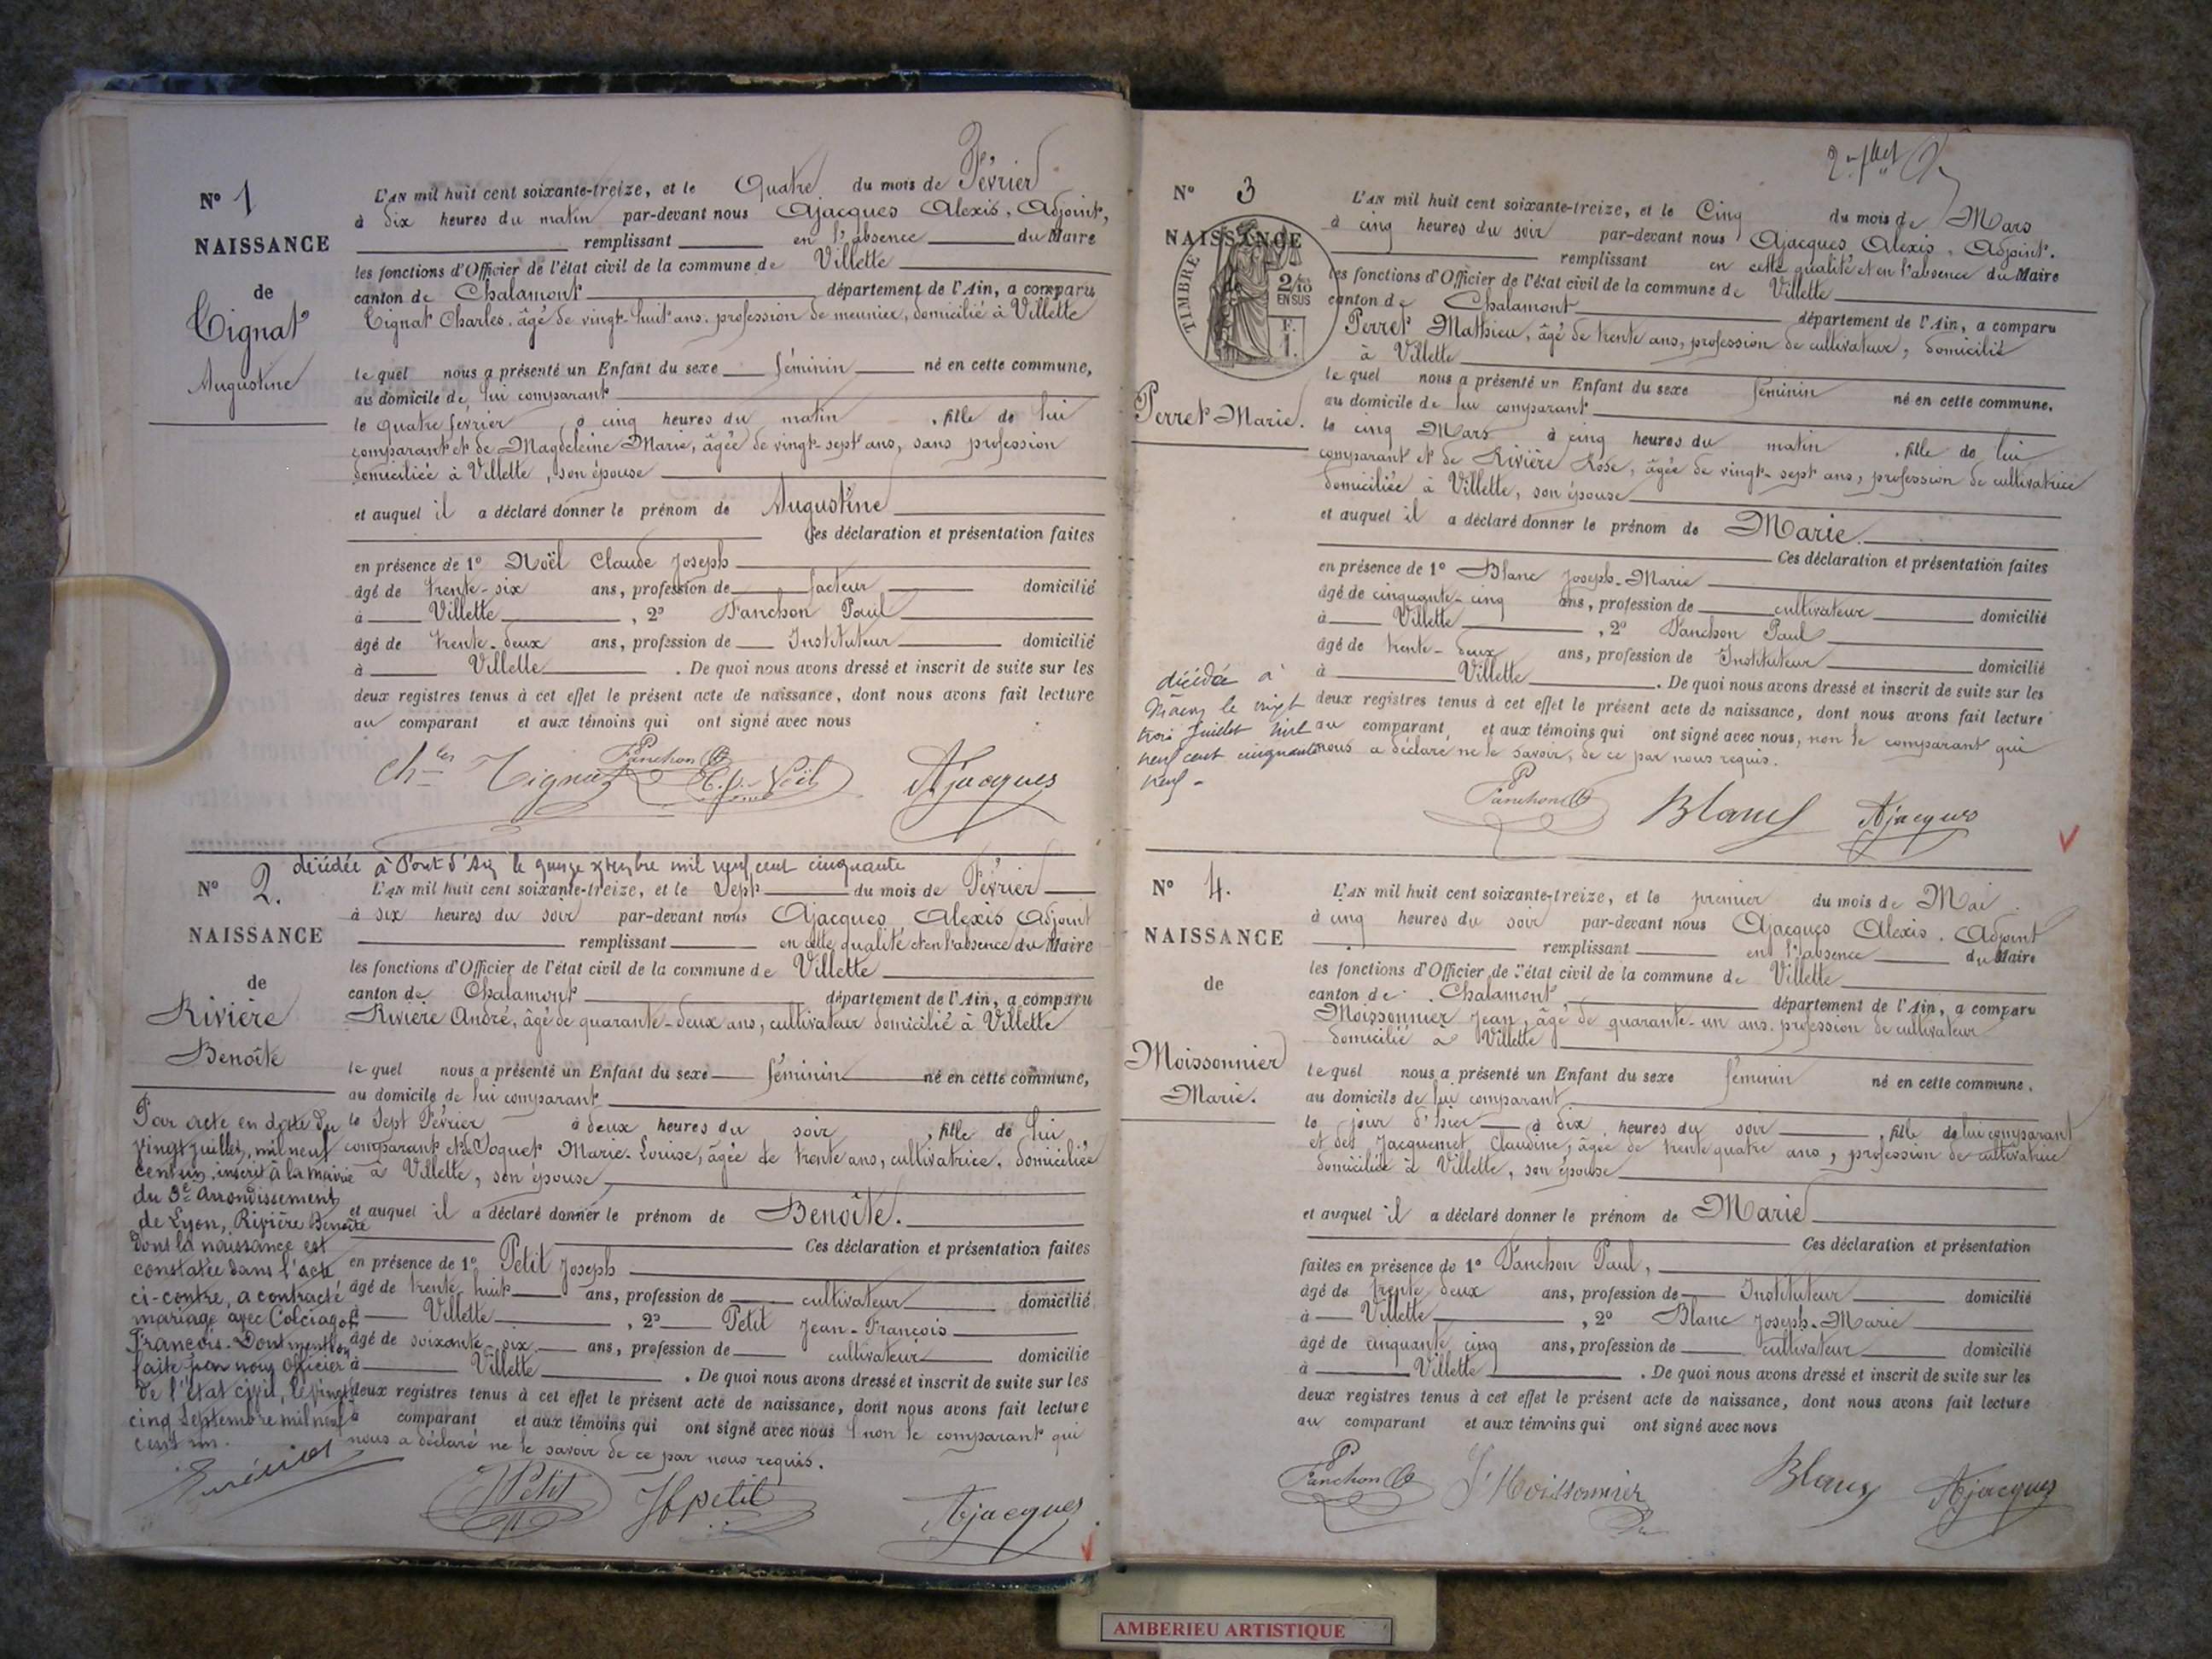 Nº 1
NAISSANCE
de
Tignat
Augustine
L'AN mil huit cent soixante-treize, et le Quatre du mois de Février
à dix heures du matin par-devant nous Ajacques Alexis, Adjoint,
remplissant en l'absence du Maire
les fonctions d'Officier de l'état civil de la commune de Villette
canton de Chalamont département de l'Ain, a comparu
Tignat Charles, âgé de vingt-huit ans, profession de meunier, domicilié à Villette
lequel nous a présenté un Enfant du sexe féminin né en cette commune,
au domicile de lui comparant
le quatre février à cinq heures du matin, fille de lui
comparant et de Magdeleine Marie, âgée de vingt-sept ans, sans profession
domiciliée à Villette, son épouse
et auquel il a déclaré donner le prénom de Augustine
Ces déclaration et présentation faites
en présence de 1º Noël Claude Joseph
âgé de trente-six ans, profession de facteur domicilié
à Villette, 2º Panchon Paul
âgé de trente-deux ans, profession de Instituteur domicilié
à Villette. De quoi nous avons dressé et inscrit de suite sur les
deux registres tenus à cet effet le présent acte de naissance, dont nous avons fait lecture
au comparant et aux témoins qui ont signé avec nous
Ch les Tignat Panchon C. J. Noël Ajacques
décédée à Pont d'Ain le quinze Xbre mil neuf cent cinquante
Nº 2.
NAISSANCE
de
Rivière
Benoîte
L'AN mil huit cent soixante-treize, et le Sept du mois de Février
à six heures du soir par-devant nous Ajacques Alexis Adjoint
remplissant en cette qualité et en l'absence du Maire
les fonctions d'Officier de l'état civil de la commune de Villette
canton de Chalamont département de l'Ain, a comparu
Rivière André, âgé de quarante-deux ans, cultivateur domicilié à Villette
lequel nous a présenté un Enfant du sexe féminin né en cette commune,
au domicile de lui comparant
le Sept Février à deux heures du soir, fille de lui
comparant et de Coquet Marie-Louise, âgée de trente ans, cultivatrice, domiciliée
à Villette, son épouse
et auquel il a déclaré donner le prénom de Benoîte.
Ces déclaration et présentation faites
en présence de 1º Petit Joseph
âgé de trente huit ans, profession de cultivateur domicilié
à Villette, 2º Petit Jean-François
âgé de soixante-six ans, profession de cultivateur domicilié
à Villette. De quoi nous avons dressé et inscrit de suite sur les
deux registres tenus à cet effet le présent acte de naissance, dont nous avons fait lecture
à comparant et aux témoins qui ont signé avec nous non le comparant qui
nous a déclaré ne le savoir de ce par nous requis.
Par acte en date du
vingt juillet, mil neuf
cent un, inscrit à la mairie
du 3e Arrondissement
de Lyon, Rivière Benoîte
dont la naissance est
constatée dans l'acte
ci-contre, a contracté
mariage avec Colciago
François. Dont mention
faite par nous Officier
de l'état civil, le vingt
cinq Septembre mil neuf
cent un.
JPetit Jf petit Ajacques
2e f llet
Nº 3
NAISSANCE
de
TIMBRE
2/10
EN SUS
F.
1.
Perret Marie.
L'AN mil huit cent soixante-treize, et le Cinq du mois de Mars
à cinq heures du soir par-devant nous Ajacques Alexis, Adjoint.
remplissant en cette qualité et en l'absence du Maire
les fonctions d'Officier de l'état civil de la commune de Villette
canton de Chalamont département de l'Ain, a comparu
Perret Mathieu, âgé de trente ans, profession de cultivateur, domicilié
à Villette
lequel nous a présenté un Enfant du sexe féminin né en cette commune.
au domicile de lui comparant
le cinq Mars à cinq heures du matin, fille de lui
comparant et de Rivière Rose, âgée de vingt-sept ans, profession de cultivatrice
domiciliée à Villette, son épouse
et auquel il a déclaré donner le prénom de Marie.
Ces déclaration et présentation faites
en présence de 1º Blanc Joseph-Marie
âgé de cinquante-cinq ans, profession de cultivateur domicilié
à Villette, 2º Panchon Paul
âgé de trente-deux ans, profession de Instituteur domicilié
à Villette. De quoi nous avons dressé et inscrit de suite sur les
deux registres tenus à cet effet le présent acte de naissance, dont nous avons fait lecture
au comparant, et aux témoins qui ont signé avec nous, non le comparant qui
nous a déclaré ne le savoir, de ce par nous requis.
décédée à
Mâcon le vingt
trois juillet mil
neuf cent cinquante
neuf -
Panchon Blanc Ajacques
Nº 4.
NAISSANCE
de
Moissonnier
Marie.
L'AN mil huit cent soixante-treize, et le premier du mois de Mai
à cinq heures du soir par-devant nous Ajacques Alexis, Adjoint
remplissant en l'absence du Maire
les fonctions d'Officier de l'état civil de la commune de Villette
canton de Chalamont, département de l'Ain, a comparu
Moissonnier Jean, âgé de quarante-un ans, profession de cultivateur
domicilié à Villette
lequel nous a présenté un Enfant du sexe féminin né en cette commune.
au domicile de lui comparant
le jour d'hier à dix heures du soir, fille de lui comparant
et de Jacquemet Claudine, âgée de trente quatre ans, profession de cultivatrice
domiciliée à Villette, son épouse
et auquel il a déclaré donner le prénom de Marie
Ces déclaration et présentation
faites en présence de 1º Panchon Paul,
âgé de trente deux ans, profession de Instituteur domicilié
à Villette, 2º Blanc Joseph-Marie
âgé de cinquante cinq ans, profession de cultivateur domicilié
à Villette. De quoi nous avons dressé et inscrit de suite sur les
deux registres tenus à cet effet le présent acte de naissance, dont nous avons fait lecture
au comparant et aux témoins qui ont signé avec nous
Panchon J Moissonnier Blanc Ajacques
AMBERIEU ARTISTIQUE